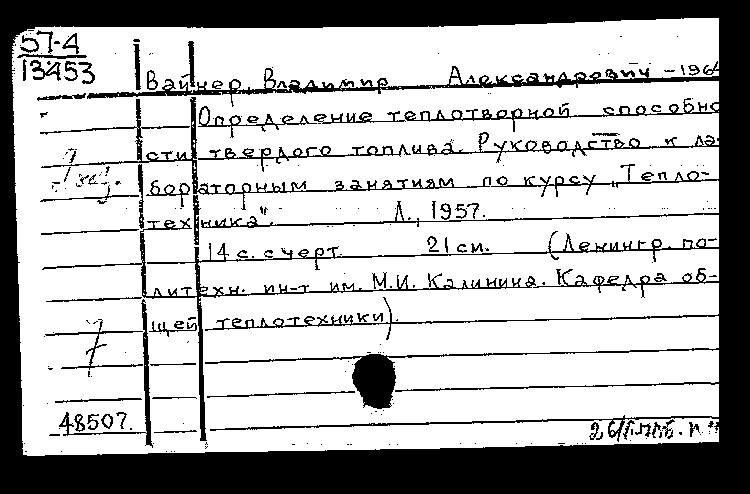 57-4
13453
Вайнер, Владимир Александрович - 196
Определение теплотворной способно
сти твердого топлива. Руководство к ла-
бораторным занятиям по курсу „Тепло-
техника".
Л., 1957.
14 с. с черт. 21 см. (Ленингр. по-
литехн. ин-т им. М.И. Калинина. Кафедра об-
щей теплотехники).
7
48507.